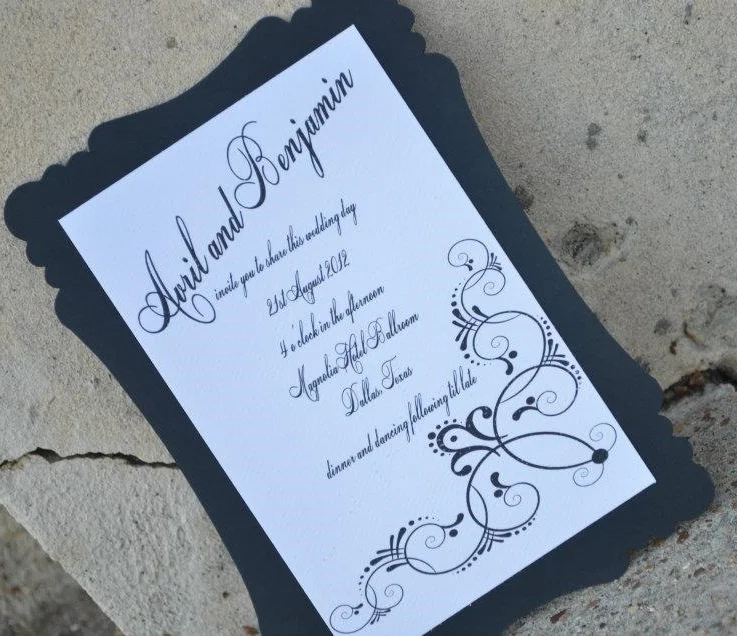 April and Benjamin
invite you to share this wedding day
21st August 2012
4 o'clock in the afternoon
Magnolia Hotel Ballroom
Dallas, Texas
dinner and dancing following til late